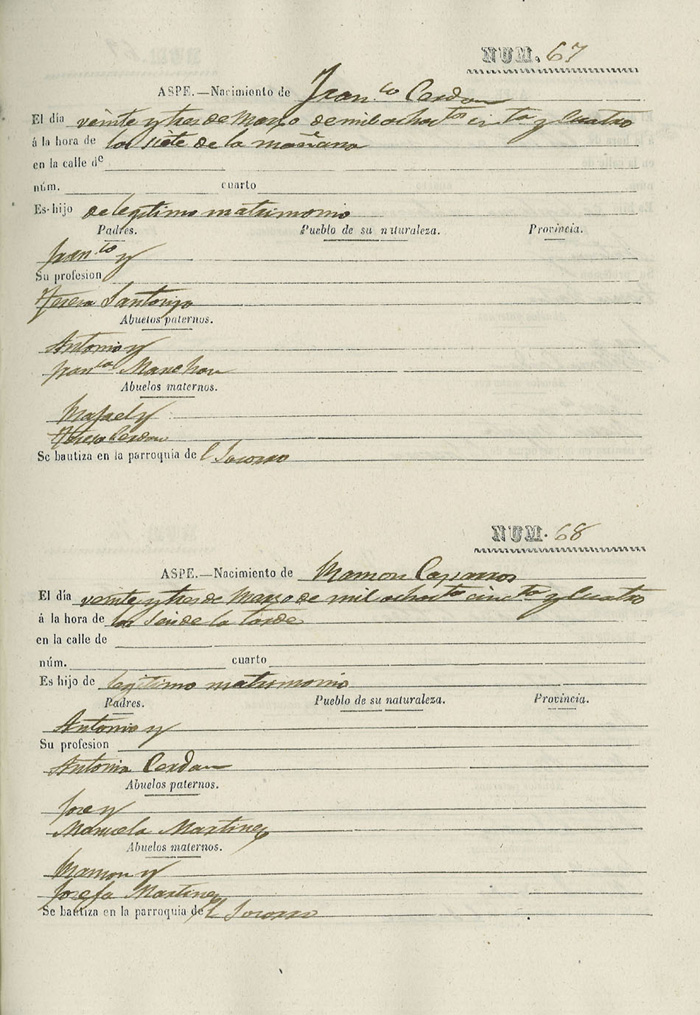 NUM. 67
ASPE.—Nacimiento de Fran.co Cerdan
El día veinte y tres de Marzo de mil ochotos cincta y Cuatro
á la hora de las siete de la mañana
en la calle de
núm. cuarto
Es hijo de legitimo matrimonio
Padres. Pueblo de su naturaleza. Provincia.
Fran.co y
Su profesion
Teresa Santonja
Abuelos paternos.
Antonio y
Fran.ca Manchon
Abuelos maternos.
Rafael y
Teresa Cerdan
Se bautiza en la parroquia de l Socorro
NUM. 68
ASPE.—Nacimiento de Ramon Caparros
El día veinte y tres de Marzo de mil ochotos cincta y Cuatro
á la hora de las seis de la tarde
en la calle de
núm. cuarto
Es hijo de legitimo matrimonio
Padres. Pueblo de su naturaleza. Provincia.
Antonio y
Su profesion
Antonia Cerdan
Abuelos paternos.
Jose y
Manuela Martinez
Abuelos maternos.
Ramon y
Josefa Martinez
Se bautiza en la parroquia de l Socorro